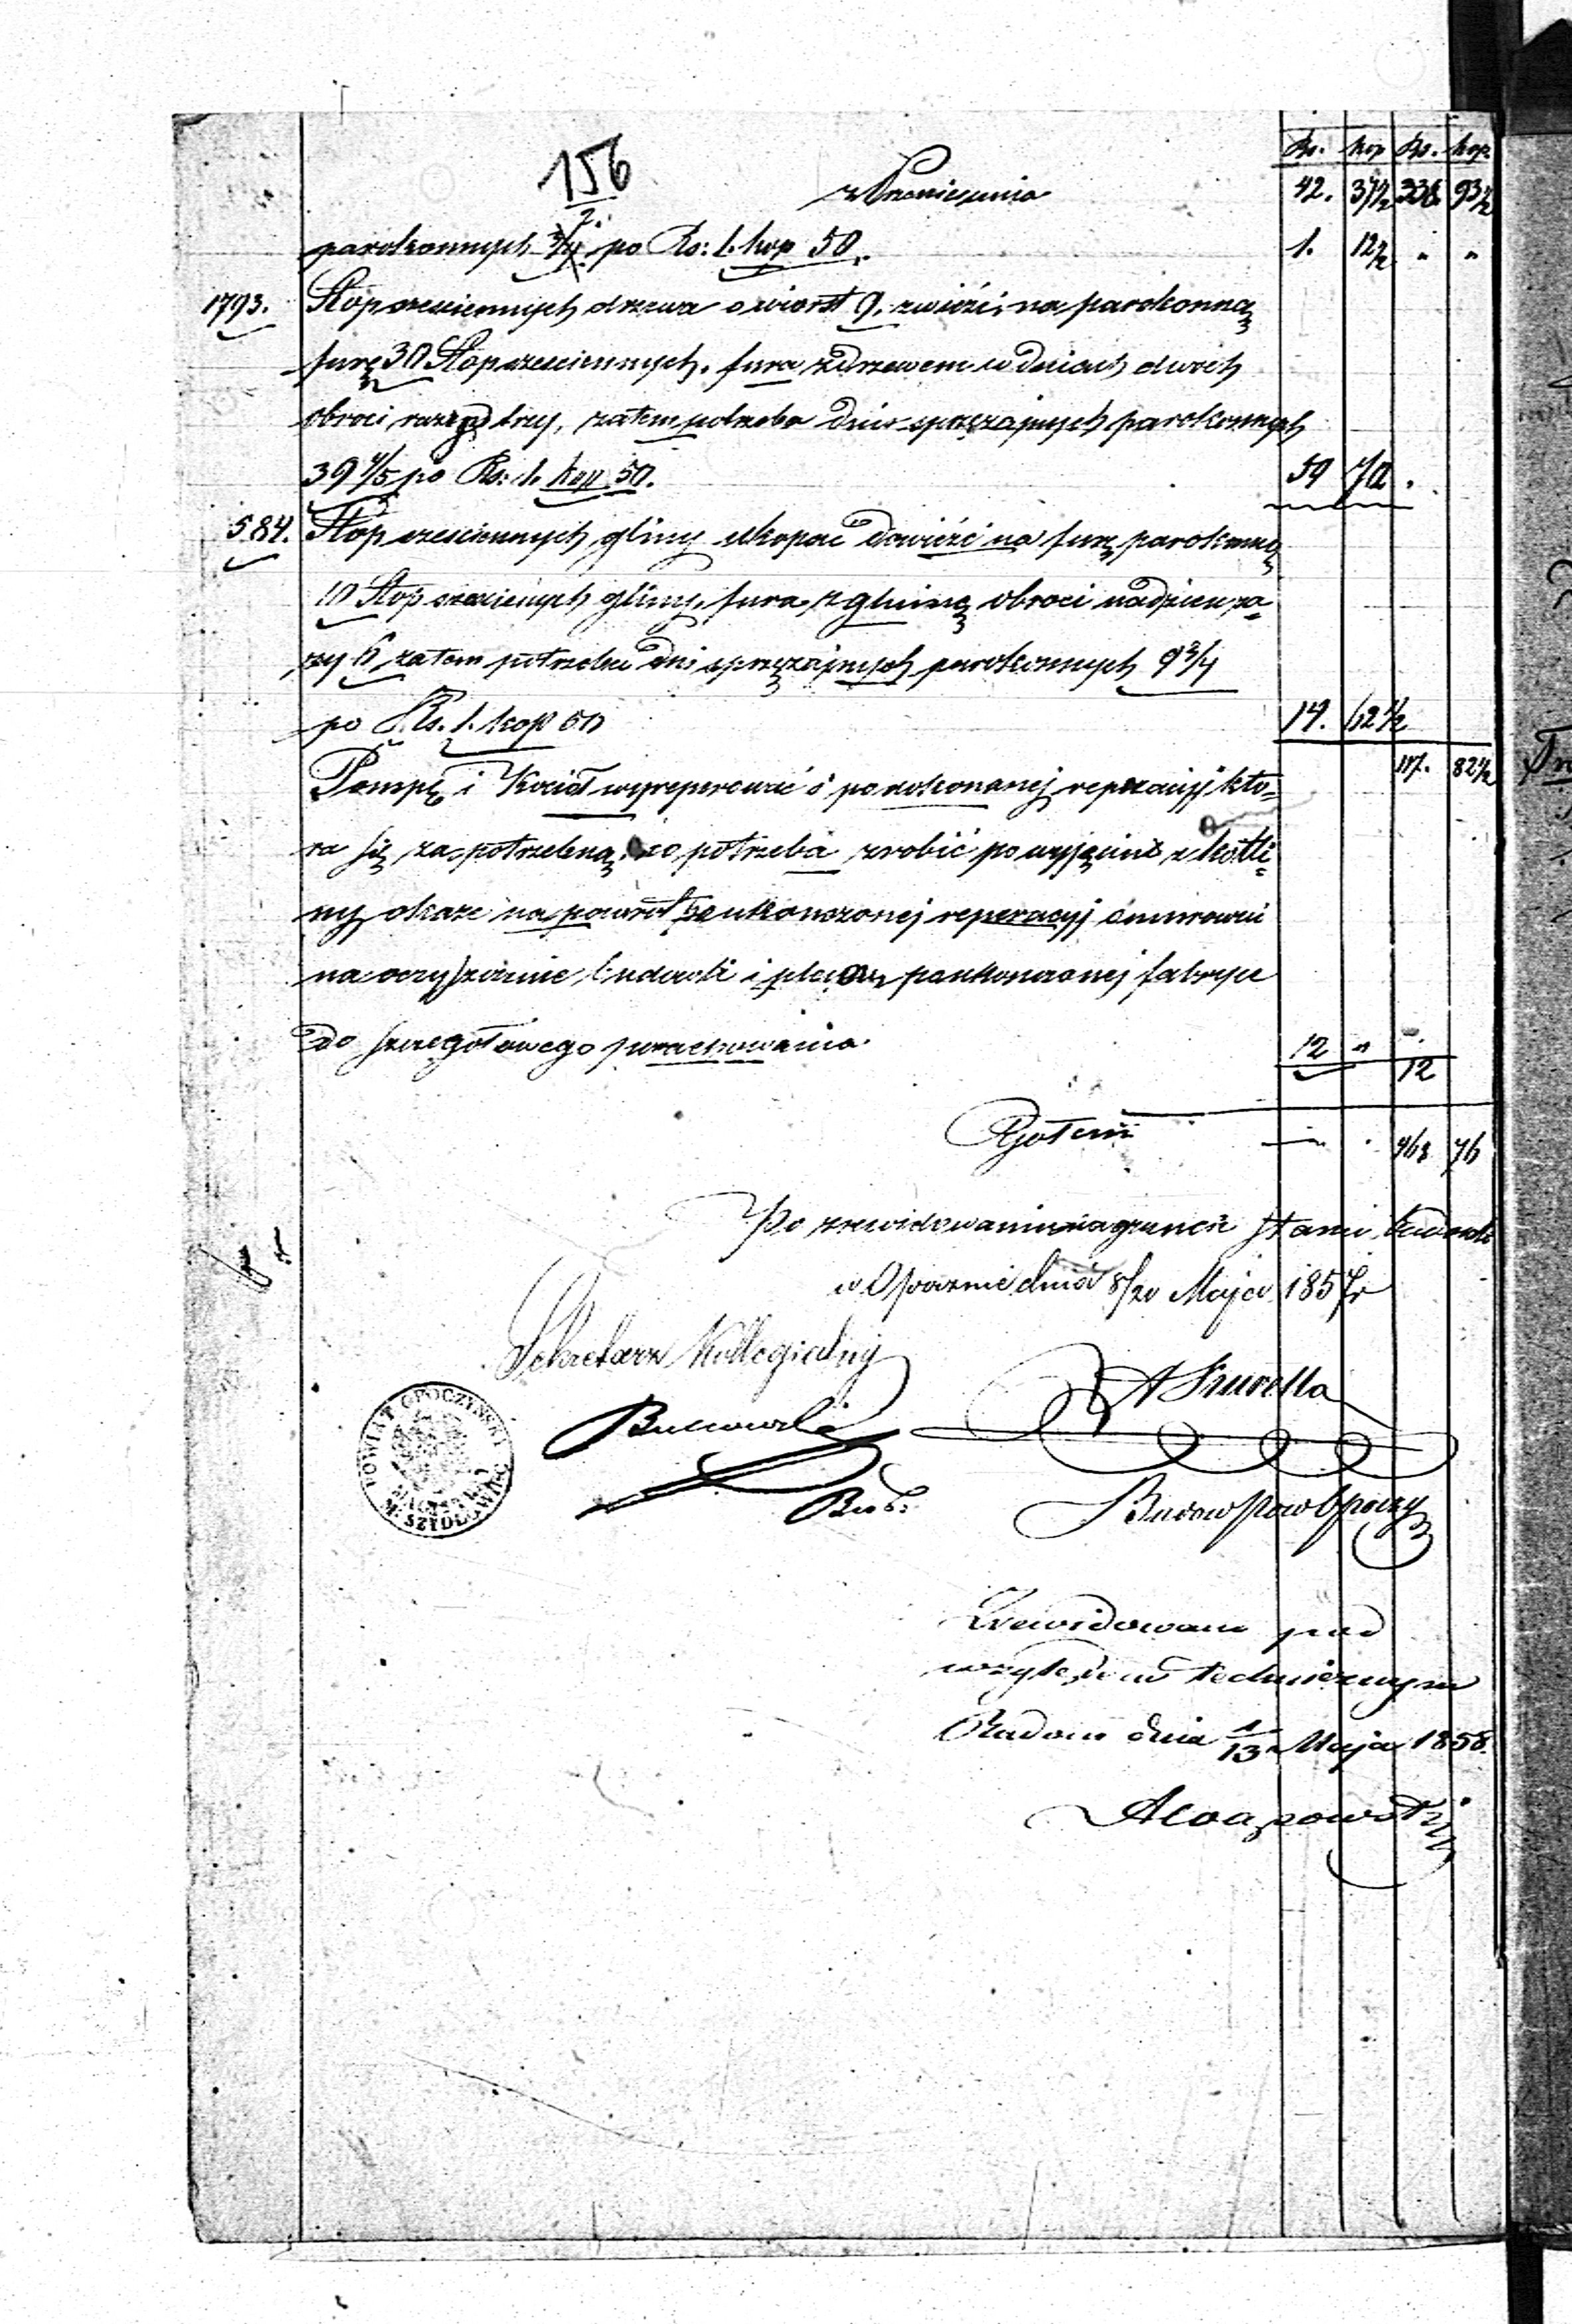 Rs. kop Rs. kop
156
z Przeniesienia 42. 37½ 338 93½
2.
parokonnych ¾ po Rs: 1. kop 50. 1. 12½ " "
1793. Stop szesciennych drzewa o wiorst 9. zwieźć, na parokonną
furę 30 Stop szesciennych. fura z drzewem w dniach dwóch
obroci razy trzy, zatem potrzeba dni sprzężajnych parokonnych
39 4/5 po Rs: 1. kop 50. 59 70 .
584. Stop szesciennych gliny ukopać dowieźć na furę parokonną
10 Stop szesciennych gliny, fura z gliną obroci na dzień ra=
zy 6 zatem potrzeba dni sprzężajnych parokonnych 9¾
po Rs. 1. kop 50 14. 62½
117. 82½
Pompę i Kocioł wyreperować i po dokonanej reperacyj któ=
ra się za potrzebną, co potrzeba zrobić po wyjęciu z kotli=
ny okaże na powrót po ukończonej reperacyj omurować
na oczyszczenie budowli i placu po ukończonej fabryce
do szczegołowego porachowania. 12 " "
12
Ogołem — . 468 76
Po zrewidowaniu na gruncie stanu budowli
w Opocznie dnia 8/20 Maja 1857 r
Sekretarz Kollegialny
A Kurella
Bud:
Budow Pow Opoczy
POWIAT OPOCZYNSKI
MAGISTRAT
M. SZYDŁOWIEC
Zrewidowano pod
względem technicznym
Radom dnia 1/13 Maja 1858.